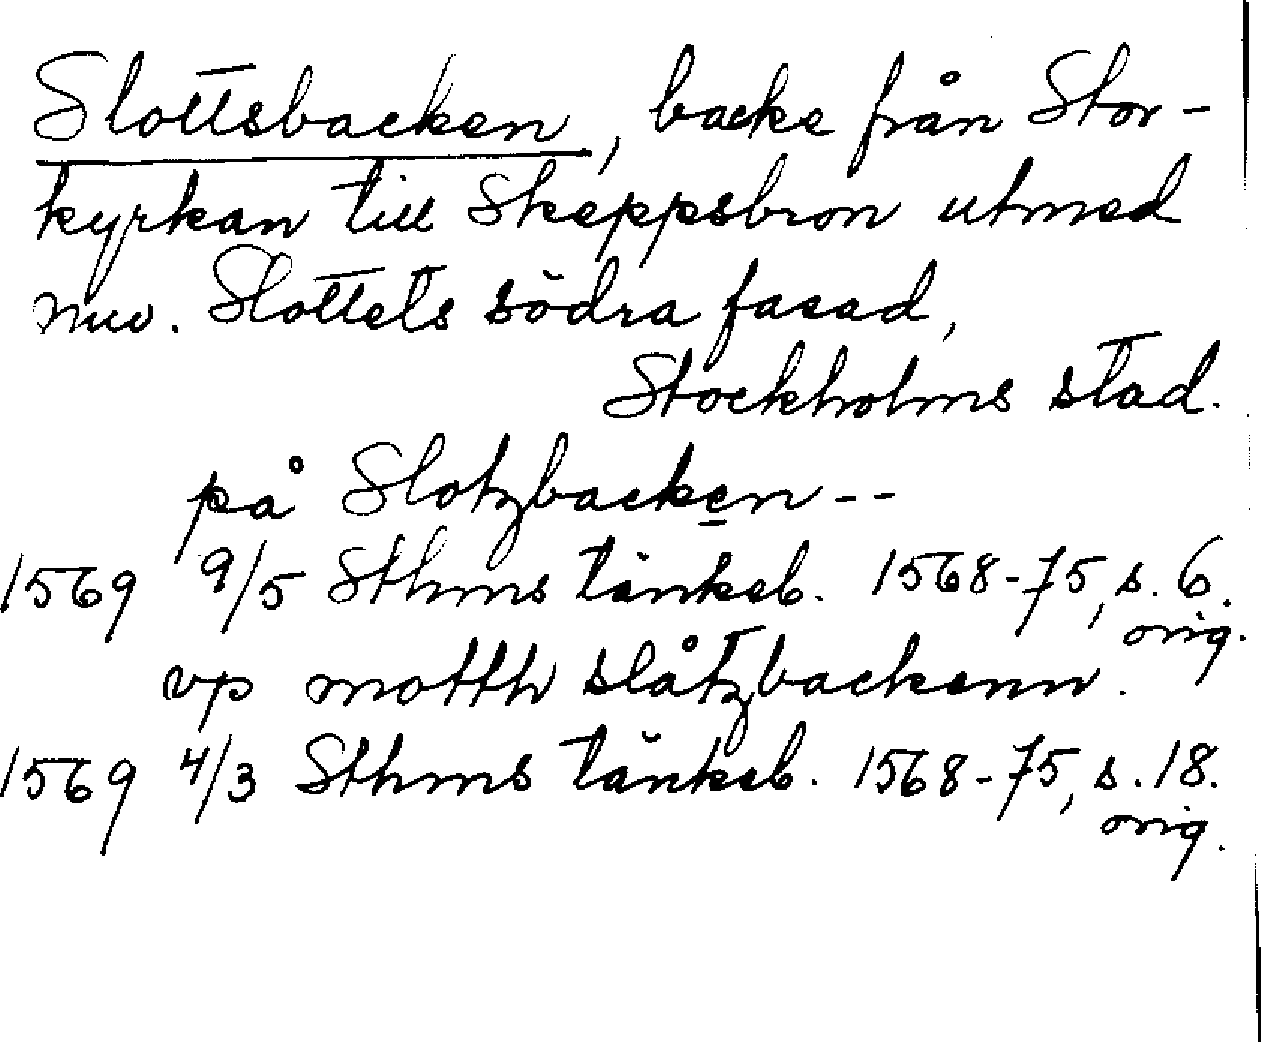 Slottsbacken, backe från Stor-
kyrkan till Skeppsbron utmed
nuv. Slottets södra fasad,
Stockholms stad.
på Slotzbacken--
1569 9/5 Sthms tänkeb. 1568-75, s. 6.
orig.
vp motth slåtzbackenn.
1569 4/3 Sthms tänkeb. 1568-75, s. 18.
orig.